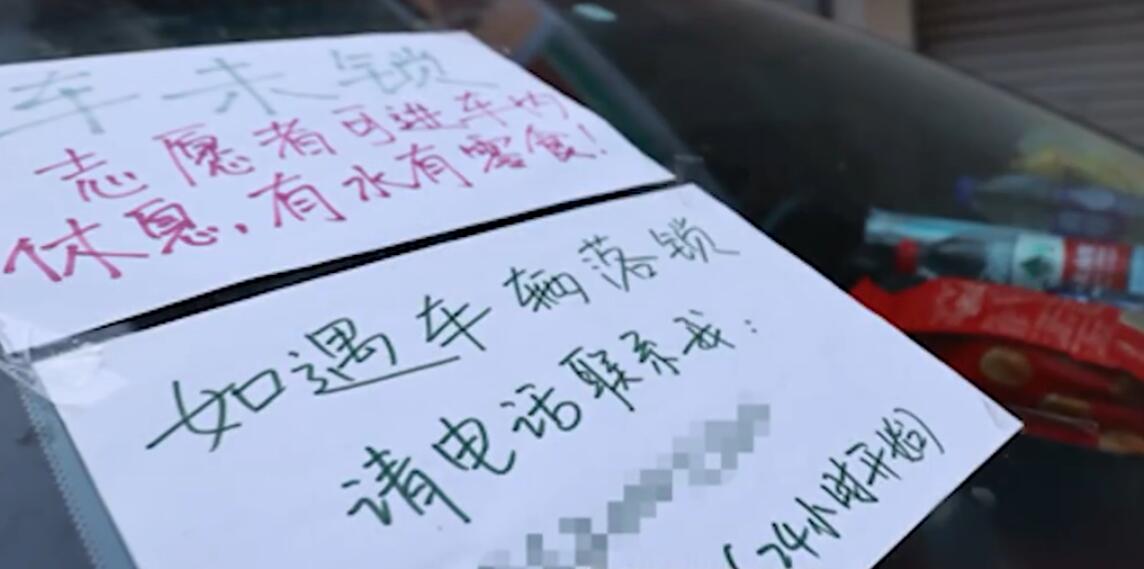 车未锁
志愿者可进车内
休息,有水有零食!
如遇车辆落锁
请电话联系我:
(24小时开始)